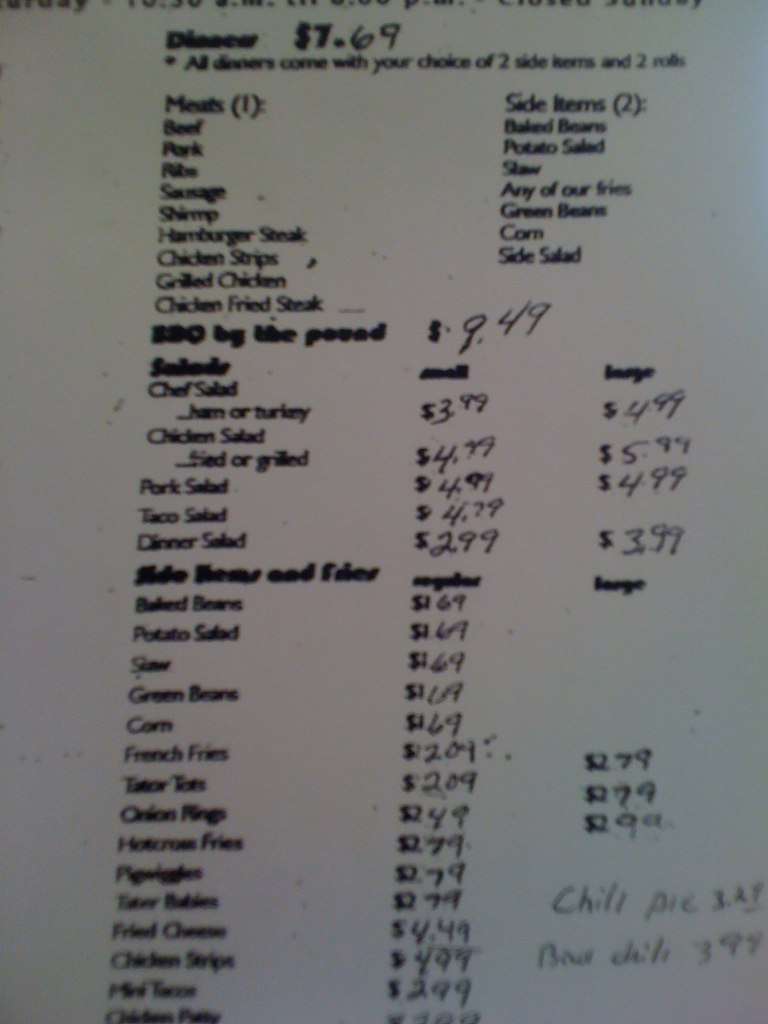 - 10:30 a.m. til 8:00 p.m. - Closed Sunday
Dinners $7.69
* All dinners come with your choice of 2 side items and 2 rolls
Meats (1): Side Items (2):
Beef Baked Beans
Pork Potato Salad
Ribs Slaw
Sausage Any of our fries
Shirmp Green Beans
Hamburger Steak Corn
Chicken Strips Side Salad
Grilled Chicken
Chicken Fried Steak
BBQ by the pound $ 9.49
Salads small large
Chef Salad
...ham or turkey $3.99 $4.99
Chicken Salad
...fried or grilled $4.99 $5.99
Pork Salad $4.99 $4.99
Taco Salad $4.79
Dinner Salad $2.99 $3.99
Side Items and Fries regular large
Baked Beans $1.69
Potato Salad $1.69
Slaw $1.69
Green Beans $1.69
Corn $1.69
French Fries $2.09 $2.79
Tator Tots $2.09 $2.79
Onion Rings $2.49 $2.99
Hotcross Fries $2.79
Pigwiggles $2.79
Tater Babies $2.79
Fried Cheese $4.49 Chili pie 3.29
Chicken Strips $4.99 Bowl chili 3.99
Mini Tacos $2.99
Chicken Patty